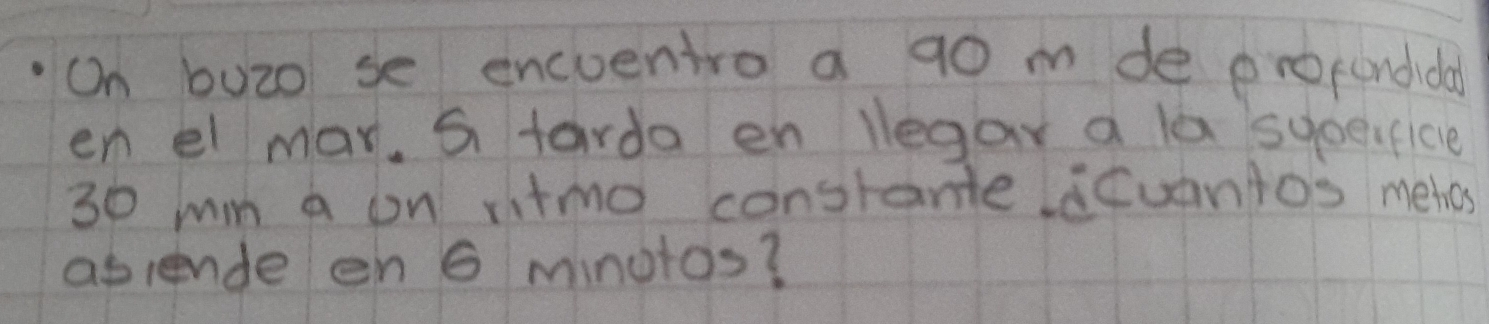 • Un buzo se encuentra a 90 m de profundidad
en el mar. Si tarda en llegar a la superficie
30 min a un ritmo constante. ¿Cuantos metros
asiende en 6 minutos?